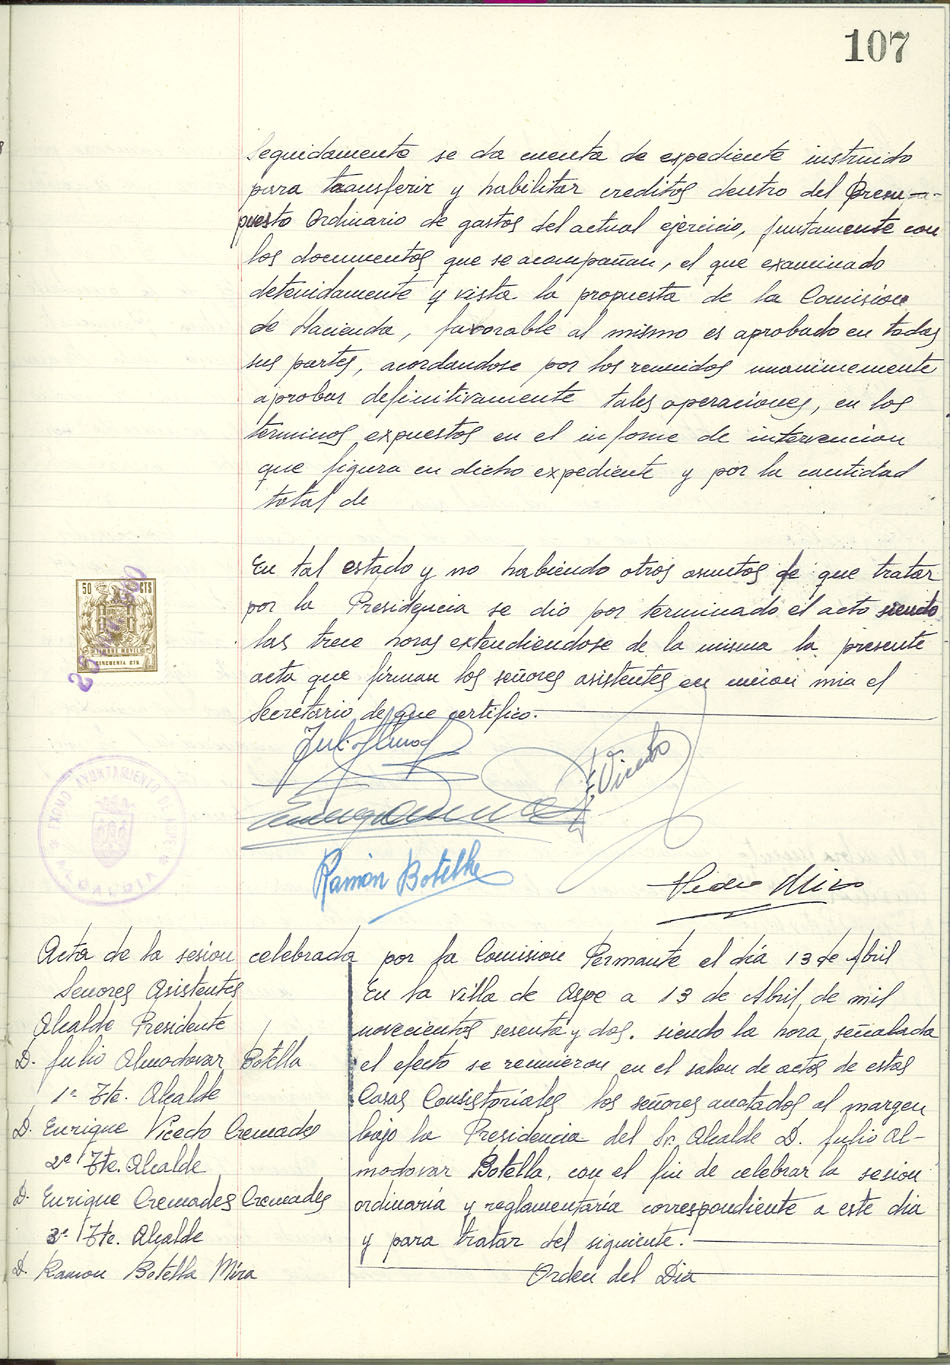 107
Seguidamente se da cuenta de expediente instruido
para transferir y habilitar creditos dentro del Presu-
puesto Ordinario de gastos del actual ejercicio, juntamente con
los documentos que se acompañan, el que examinado
detenidamente y vista la propuesta de la Comision
de Hacienda, favorable al mismo es aprobado en todas
sus partes, acordandose por los reunidos unanimemente
aprobar definitivamente tales operaciones, en los
terminos expuestos en el informe de intervencion
que figura en dicho expediente y por la cantidad
total de
En tal estado y no habiendo otros asuntos de que tratar
por la Presidencia se dio por terminado el acto siendo
las trece horas extendiendose de la misma la presente
acta que firman los señores asistentes en union mia el
Secretario de que certifico.
50 CTS
CINCUENTA CTS
EXCMO AYUNTAMIENTO ASPE
ALCALDIA
E. Vicedo
Ramón Botella
Pedro Miro
Acta de la sesion celebrada por la Comision Permante el día 13 de Abril
Señores Asistentes
Alcalde Presidente
D. Julio Almodovar Botella
1º Tte. Alcalde
D. Enrique Vicedo Cremades
2º Tte. Alcalde
D. Enrique Cremades Cremades
3º Tte. Alcalde
D. Ramon Botella Mira
En la villa de Aspe a 13 de Abril, de mil
novecientos sesenta y dos. siendo la hora señalada
el efecto se reunieron en el salon de actos de estas
Casas Consistoriales los señores anotados al margen
bajo la Presidencia del Sr. Alcalde D. Julio Al-
modovar Botella, con el fin de celebrar la sesion
ordinaria y reglamentaría correspondiente a este dia
y para tratar del siguiente.
Orden del Dia